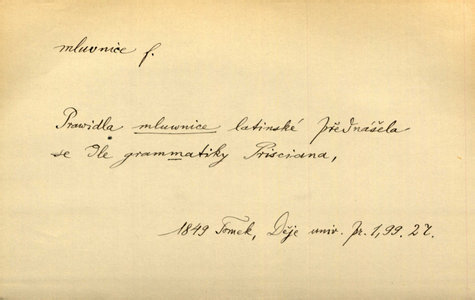 mluvnice f.
Prawidla mluwnice latinské přednášela
se dle grammatiky Prisciana,
1849 Tomek, Děje univ. pr. 1,99. 27.